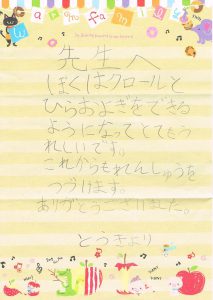 先生へ
ぼくはクロールと
ひらおよぎをできる
ようになってとてもう
れしいです。
これかられんしゅうを
つづけます。
ありがとうございました。
とうきより